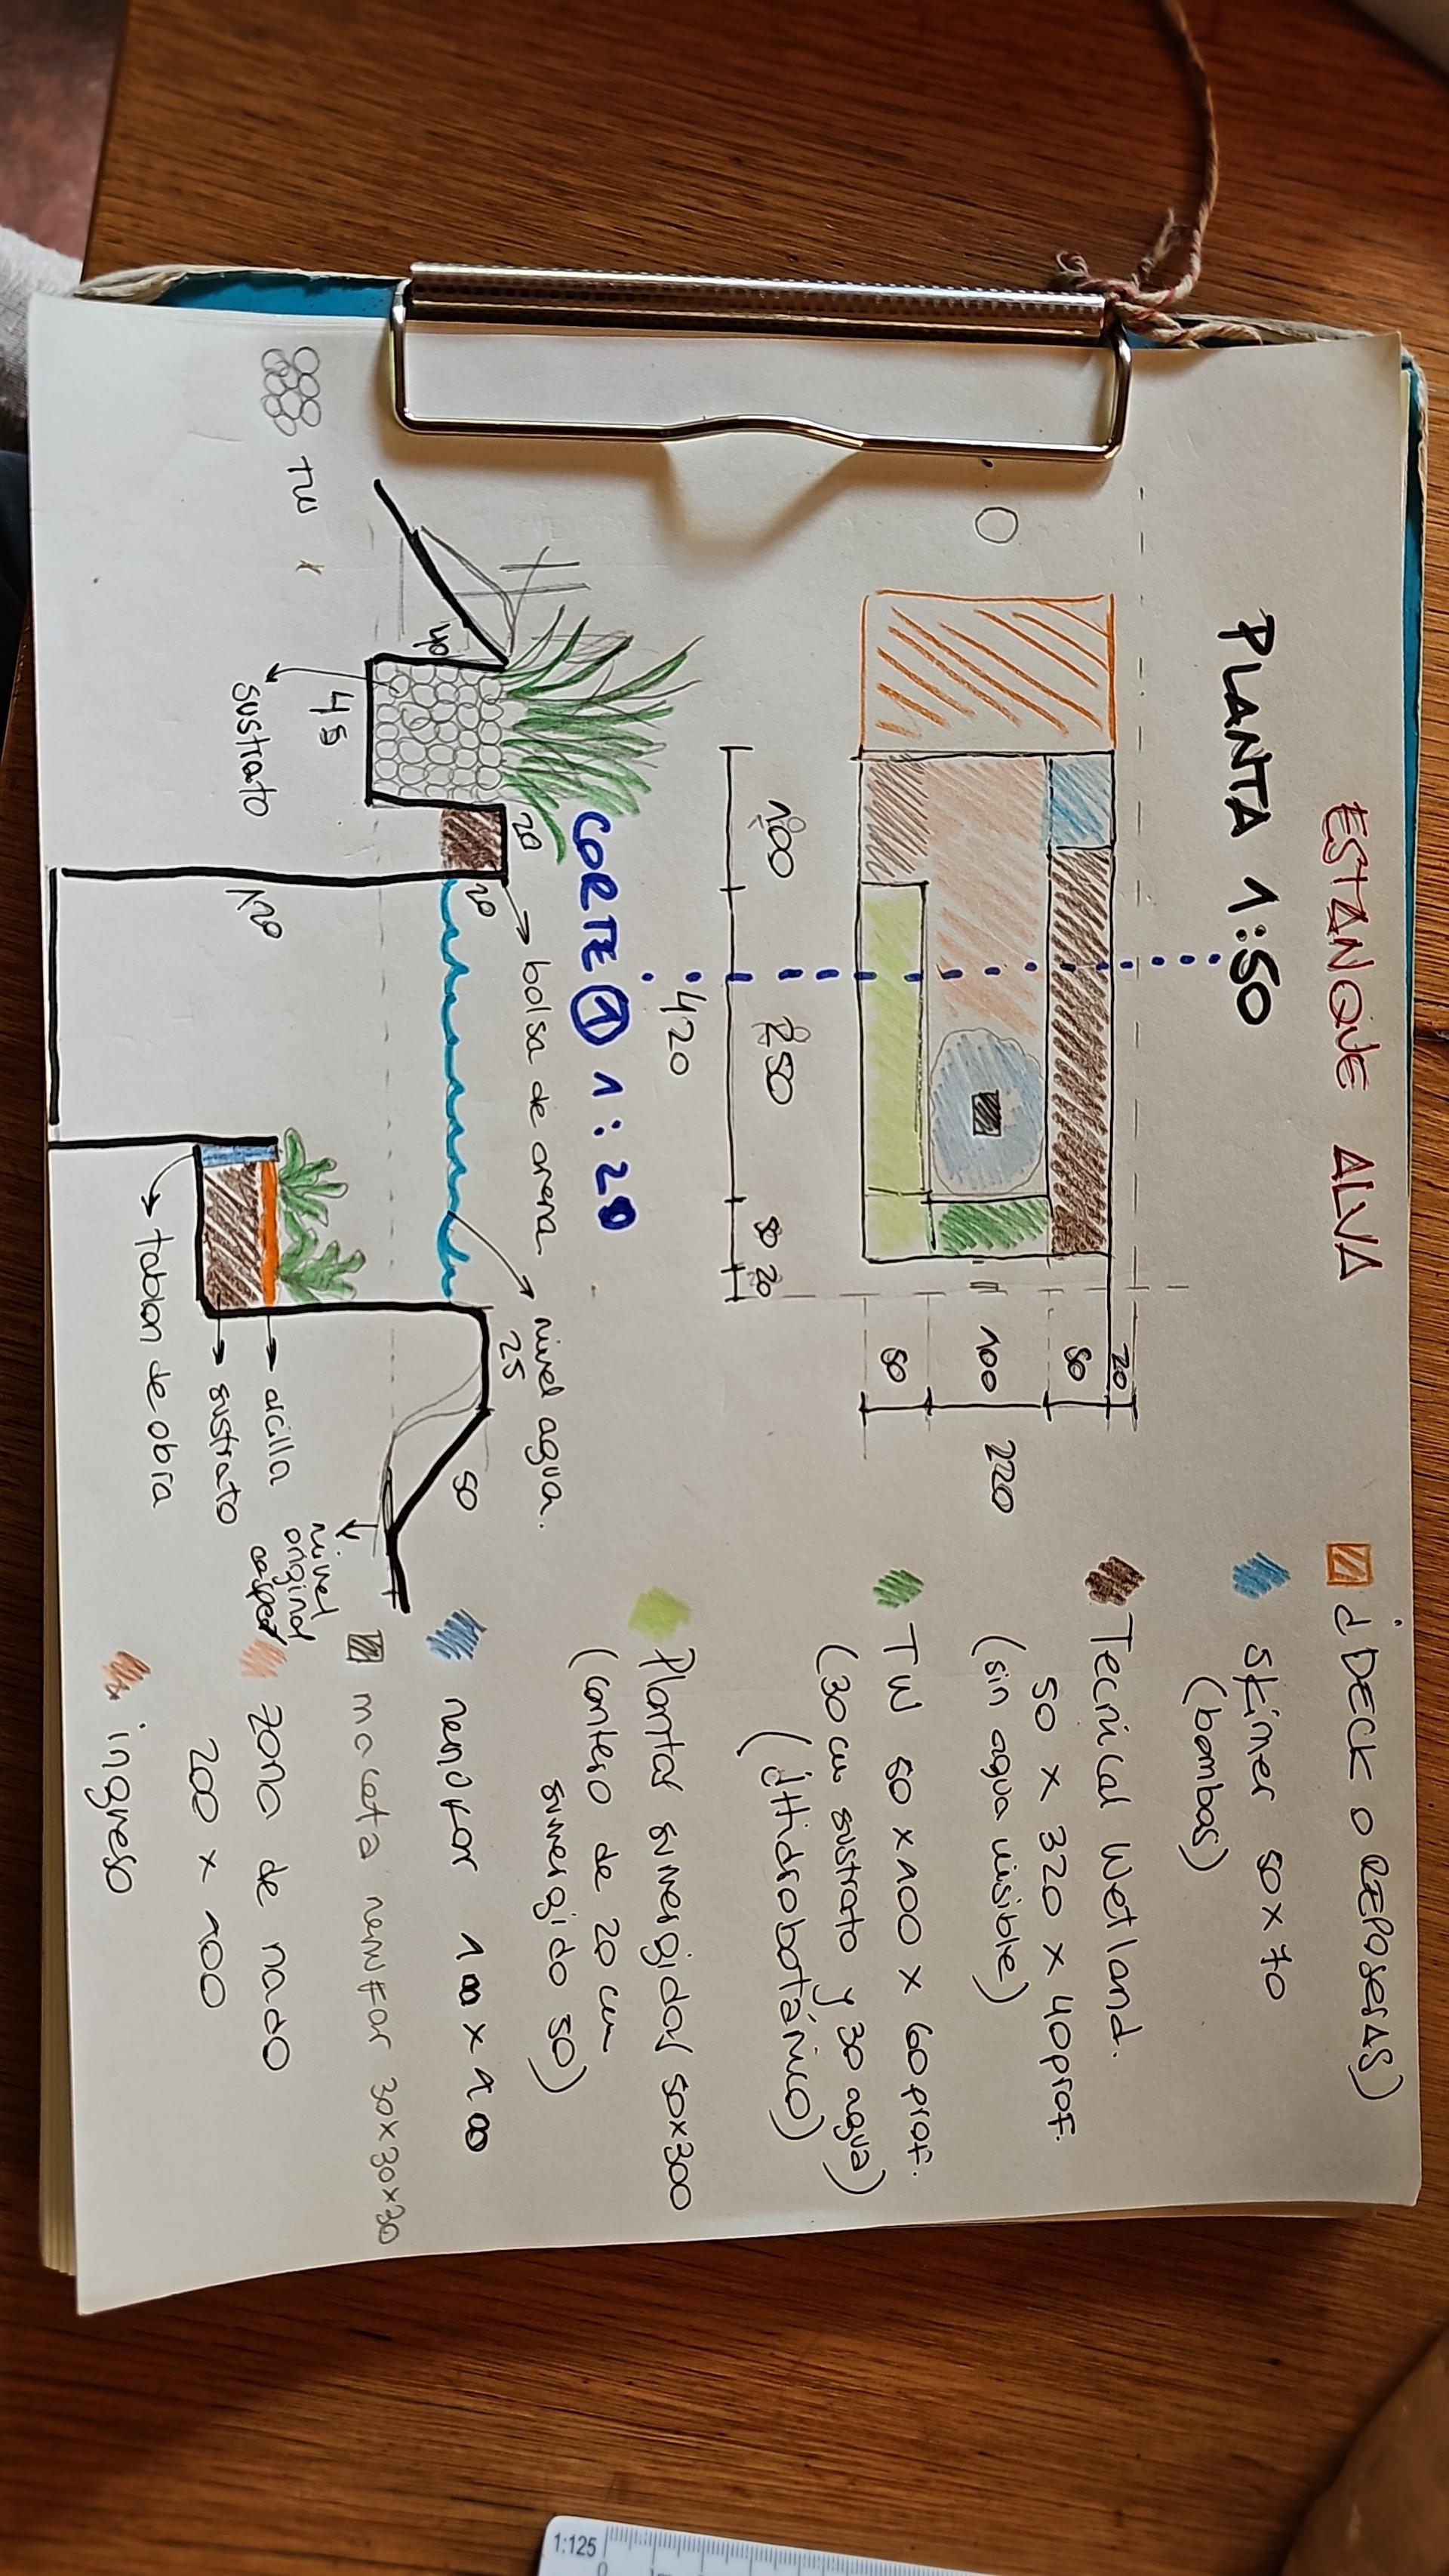 ESTANQUE ALVA
PLANTA 1:50
20
50
100
50
220
100
250
50
20
420
CORTE 1 1:20
40
45
sustrato
TW
20
20
bolsa de arena
120
nivel agua.
25
50
nivel
original
arcilla
sustrato
tablon de obra
DECK o REPOSERAS)
skimer 50x70
(bombas)
Tecnical Wetland.
50 x 320 x 40prof.
(sin agua visible)
TW 50 x100 x 60 prof.
(30 cm sustrato y 30 agua)
(Hidrobotánico)
Plantas sumergidas 50x300
(cantero de 20 cm
sumergido 50)
nenufar 100 x 100
maceta nenufar 30x30x30
zona de nado
200 x 100
ingreso
1:125
0